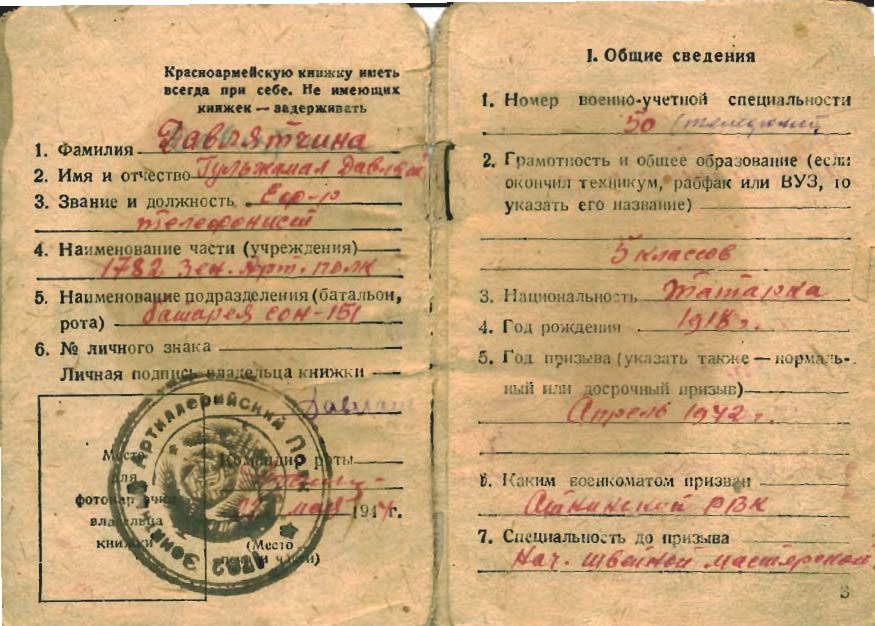 Красноармейскую книжку иметь
всегда при себе. Не имеющих
книжек — задерживать
1. Фамилия Давлятчина
2. Имя и отчество Гульжамал
3. Звание и должность Еф-р
телефонист
4. Наименование части (учреждения)
1782 Зен. Арт. полк
5. Наименование подразделения (батальон,
рота) батарея СОН-151
6. № личного знака
Личная подпись владельца книжки
Давлят
Место
для
фотокарточки
владельца
книжки
Командир роты
мая 1944г.
(Место
печати части)
1782 Зенитный Артиллерийский Полк
I. Общие сведения
1. Номер военно-учетной специальности
50
2. Грамотность и общее образование (если
окончил техникум, рабфак или ВУЗ, то
указать его название)
5 классов
3. Национальность татарка
4. Год рождения 1918 г.
5. Год призыва (указать также — нормаль-
ный или досрочный призыв)
Апрель 1942 г.
6. Каким военкоматом призван
Атнинской РВК
7. Специальность до призыва
Нач. швейной мастерской
3